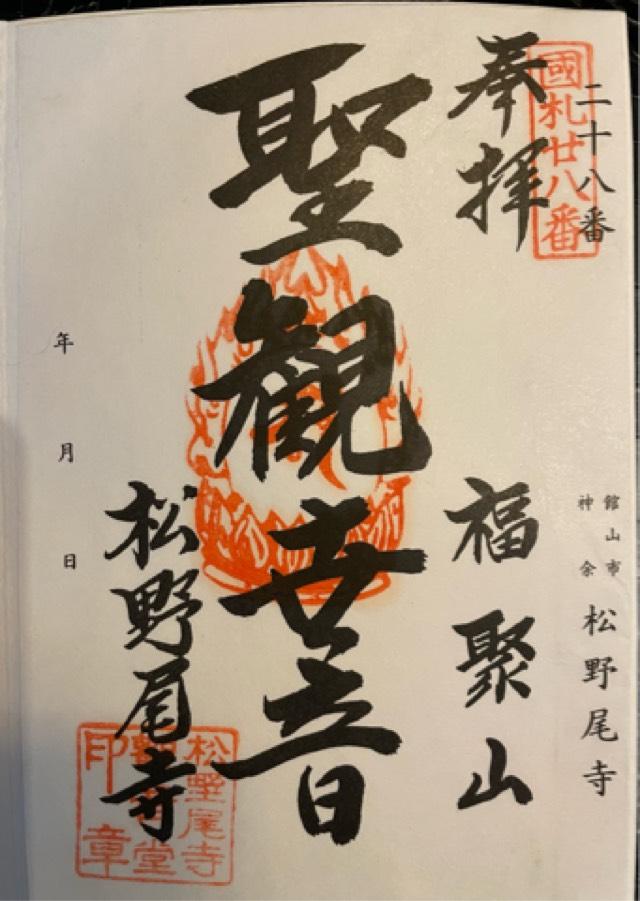 二十八番
國札廿八番
館山市
神余
松野尾寺
奉拝
福聚山
聖観世音
松野尾寺
松野尾寺
堂
印章
年 月 日